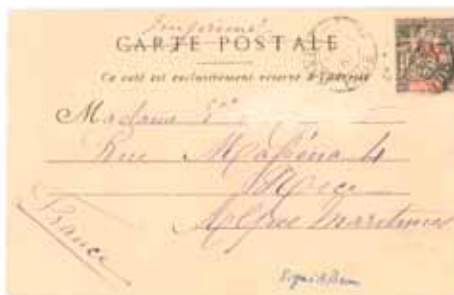 Imprimé
CARTE POSTALE
Ce côté est exclusivement réservé à l'adresse
Madame
Rue Masséna 4
Nice
Alpes Maritimes
France